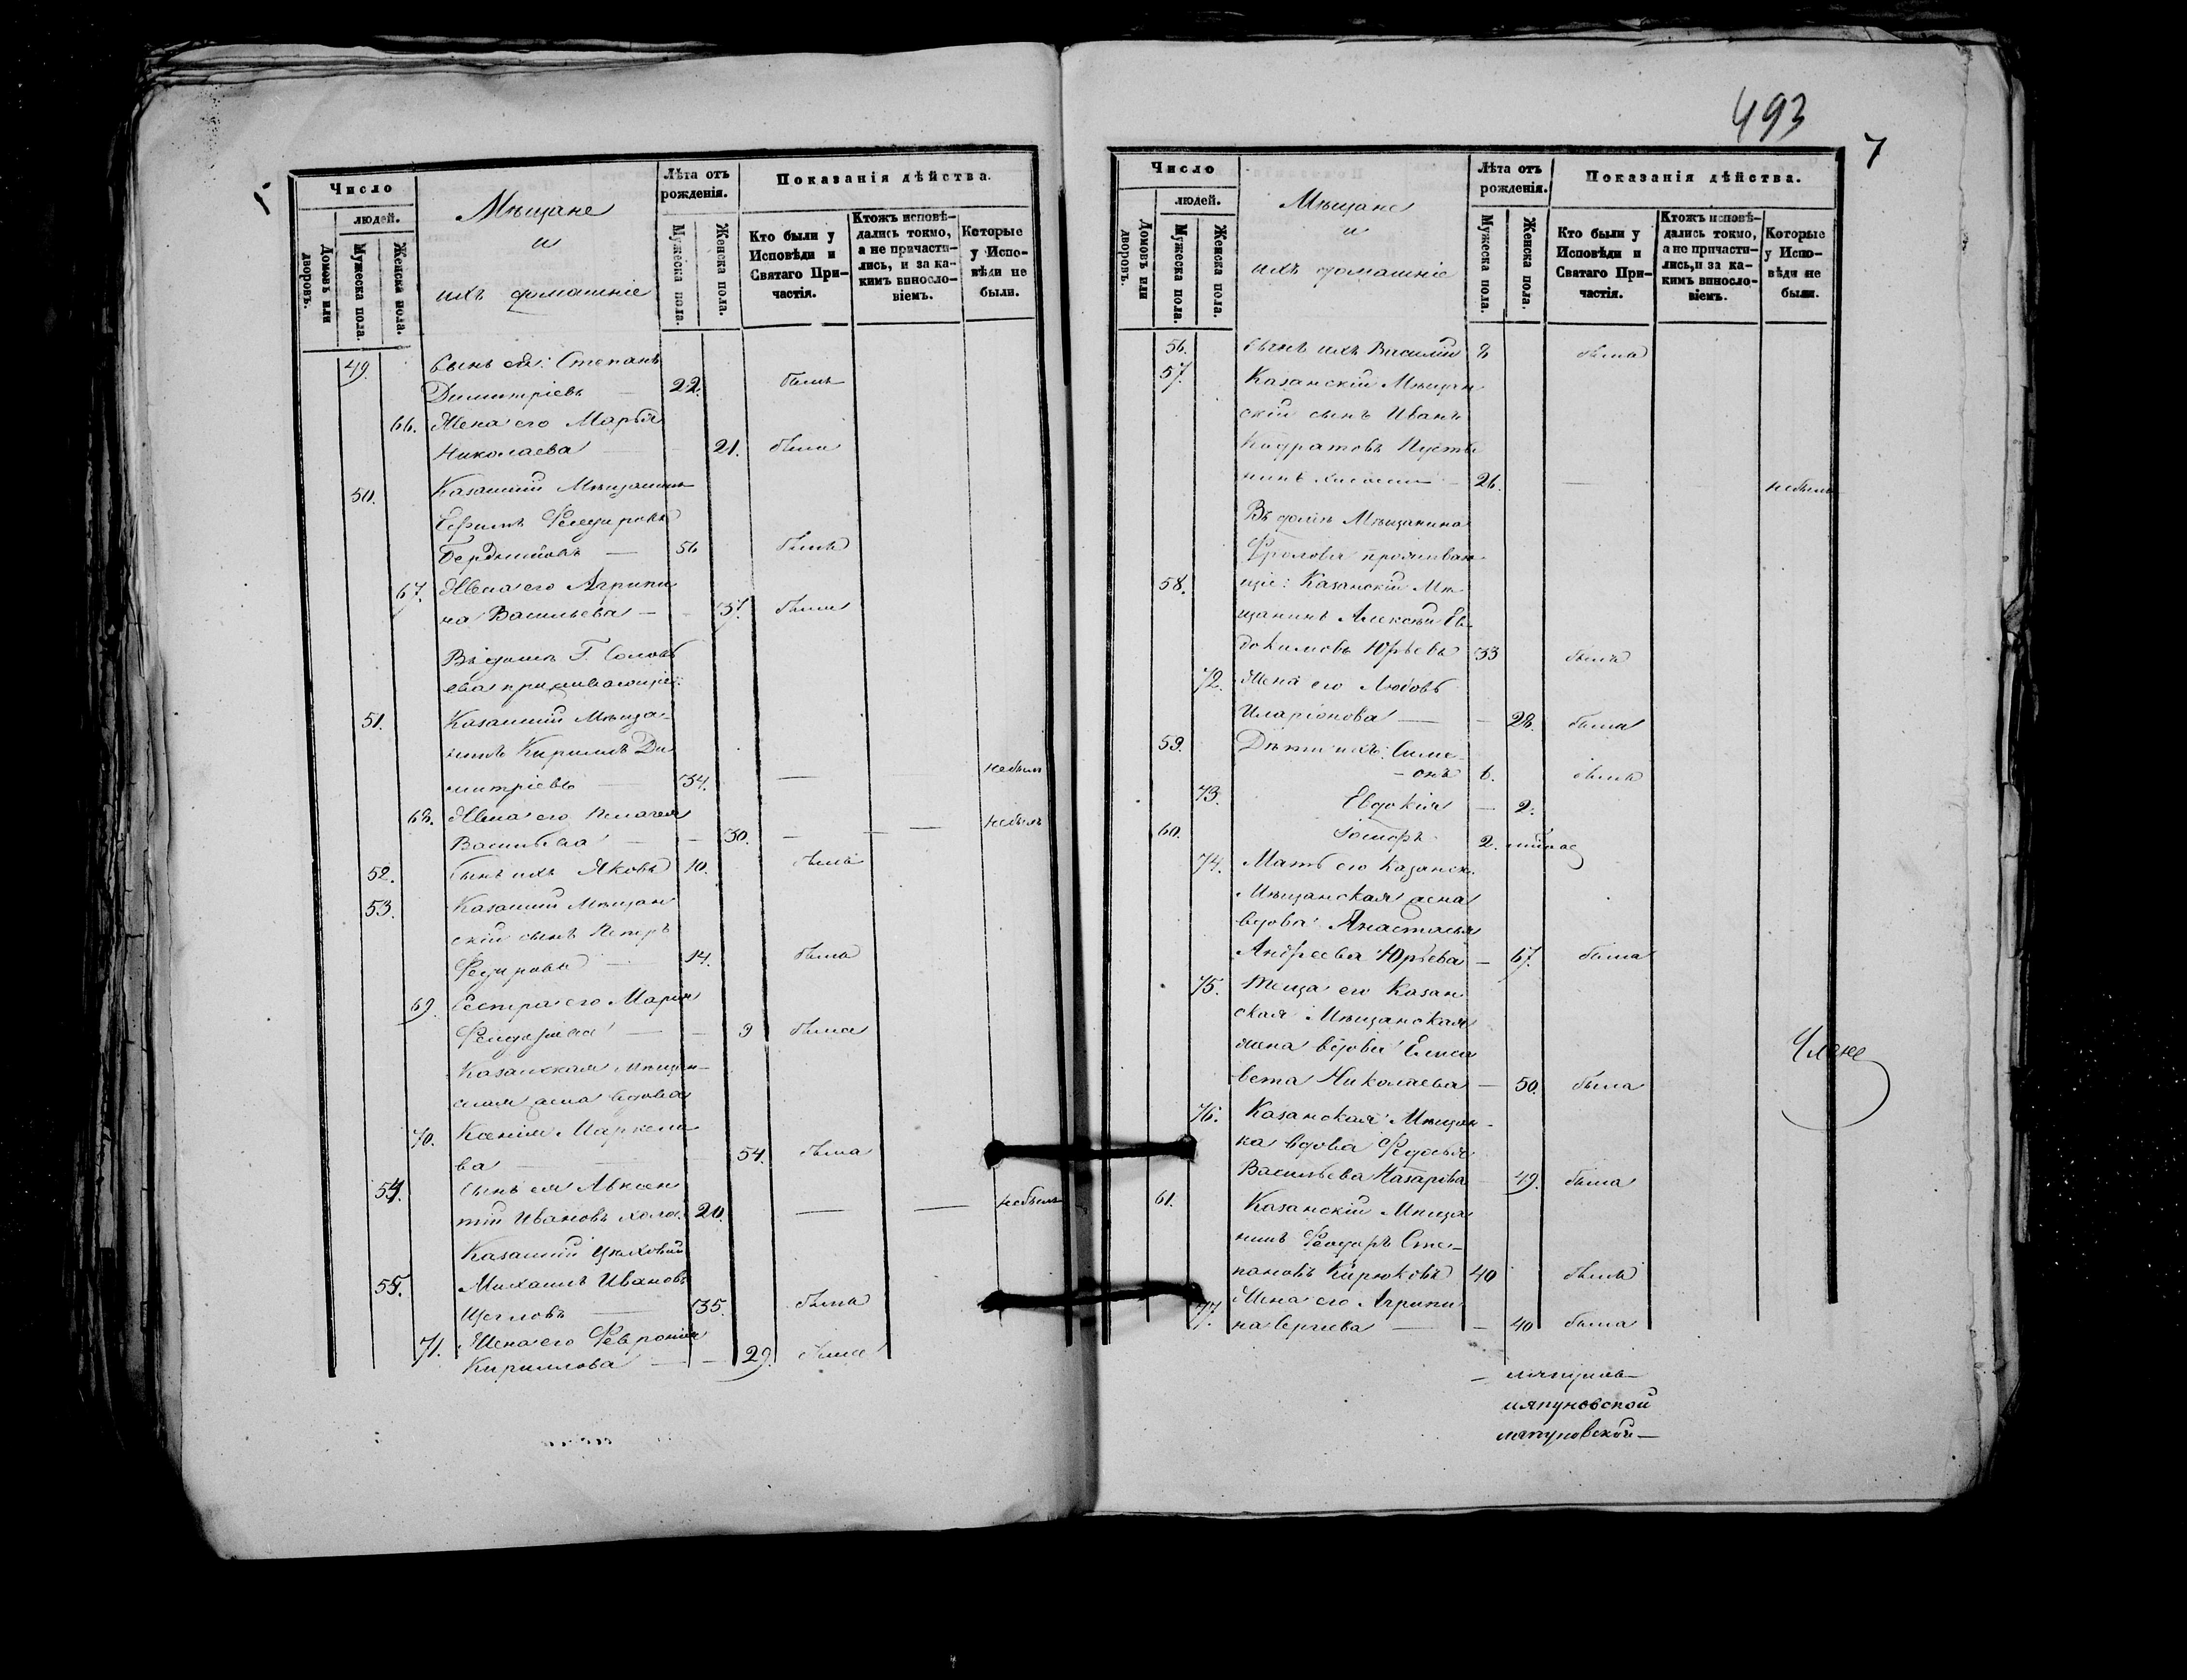 493
7
Число
людей.
Домовъ или дворовъ.
Мужеска пола.
Женска пола.
Мѣщане
и
ихъ домашніе
Лѣта отъ рожденія.
Мужеска пола.
Женска пола.
Показанія дѣйства.
Кто были у Исповѣди и Святаго Причастія.
Ктожъ исповѣдались токмо, а не причастились, и за какимъ винословіемъ.
Которые у Исповѣди не были.
49. Сынъ ея: Степанъ
Димитріевъ — 22. былъ
66. Жена его Марья
Николаева — 21. была
50. Казанскій Мѣщанинъ
Ефимъ Феодоровъ
56 былъ
67. Жена его Агрипи
на Васильева — 57. была
Въ домѣ Г. Соловь
ева проживающіе:
51. Казанскій Мѣща-
нинъ Кирилъ Ди
митріевъ — 34. — небылъ
68. Жена его Пелагея
Васильева — 30. — небыла
52. Сынъ ихъ Яковъ 10. былъ
53. Казанскій Мѣщан
скій сынъ Петръ
Федоровъ — 14. былъ
69. Сестра его Марія
Феодорова — 9 была
Казанская мѣщан-
ская жена вдова
70. Ксенія Маркело
ва — 54. была
54. Сынъ ея Авксен
тій Ивановъ холос. 20. — — небылъ
Казанскій цѣховый
55. Михаилъ Ивановъ
Щегловъ — 35. былъ
71. Жена его Феврония
Кириллова — 29. была
Число
людей.
Домовъ или дворовъ.
Мужеска пола.
Женска пола.
Мѣщане
и
ихъ домашніе
Лѣта отъ рожденія.
Мужеска пола.
Женска пола.
Показанія дѣйства.
Кто были у Исповѣди и Святаго Причастія.
Ктожъ исповѣдались токмо, а не причастились, и за какимъ винословіемъ.
Которые у Исповѣди не были.
56. Сынъ ихъ Василій 8 былъ
57. Казанскій Мѣщан
скій сынъ Иванъ
Кодратовъ Пусты
нинъ холост — 26. — небылъ
Въ домѣ Мѣщанина
Фролова проживаю
58. щіе: Казанскій Мѣ
щанинъ Алексѣй Ев-
докимовъ Юрьевъ 33 былъ
72. Жена его Любовь
Иларіонова — 28. была
59. Дѣти ихъ: Симе-
-онъ 6. былъ
73. Евдокія — 2.
60. 2.
74. Мать его Казанск.
Мѣщанская жена
вдова Анастасія
Андреева Юрьева — 67. была
75. Теща его Казан
ская Мѣщанская
жена вдова Елиса
вета Николаева — 50. была
76. Казанская Мѣщан-
ка вдова Федосья
Васильева Назарова — 49. была
61. Казанскій Мѣща
нинъ Феодоръ Сте-
пановъ Кирюковъ 40 былъ
77. Жена его Агрипи
на Сергѣева — 40 была
ляпуновской
ляпуновской —